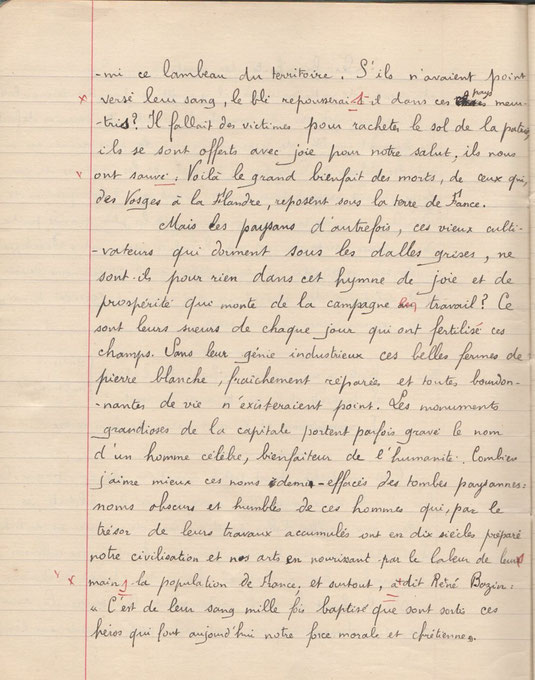 -mi ce lambeau du territoire. S'ils n'avaient point
versé leur sang, le blé repousserait il dans ces pays meur-
tris? Il fallait des victimes pour racheter le sol de la patrie
ils se sont offerts avec joie pour notre salut, ils nous
ont sauvé. Voilà le grand bienfait des morts, de ceux qui,
des Vosges à la Flandre, reposent sous la terre de France.
Mais les paysans d'autrefois, ces vieux culti-
-vateurs qui dorment sous les dalles grises, ne
sont-ils pour rien dans cet hymne de joie et de
prospérité qui monte de la campagne travail? Ce
sont leurs sueurs de chaque jour qui ont fertilisé ces
champs. Sans leur génie industrieux ces belles fermes de
pierre blanche, fraîchement réparées et toutes bourdon-
-nantes de vie n'existeraient point. Les monuments
grandioses de la capitale portent parfois gravé le nom
d'un homme célèbre, bienfaiteur de l'humanité. Combien
j'aime mieux ces noms demi-effacés des tombes paysannes:
noms obscurs et humbles de ces hommes qui, par le
trésor de leurs travaux accumulés ont en dix siècles préparé
notre civilisation et nos arts en nourissant par le labeur de leurs
mains la population de France, et surtout, a dit René Bazin:
« C'est de leur sang mille fois baptisé que sont sortis ces
héros qui font aujourd'hui notre force morale et chrétienne.